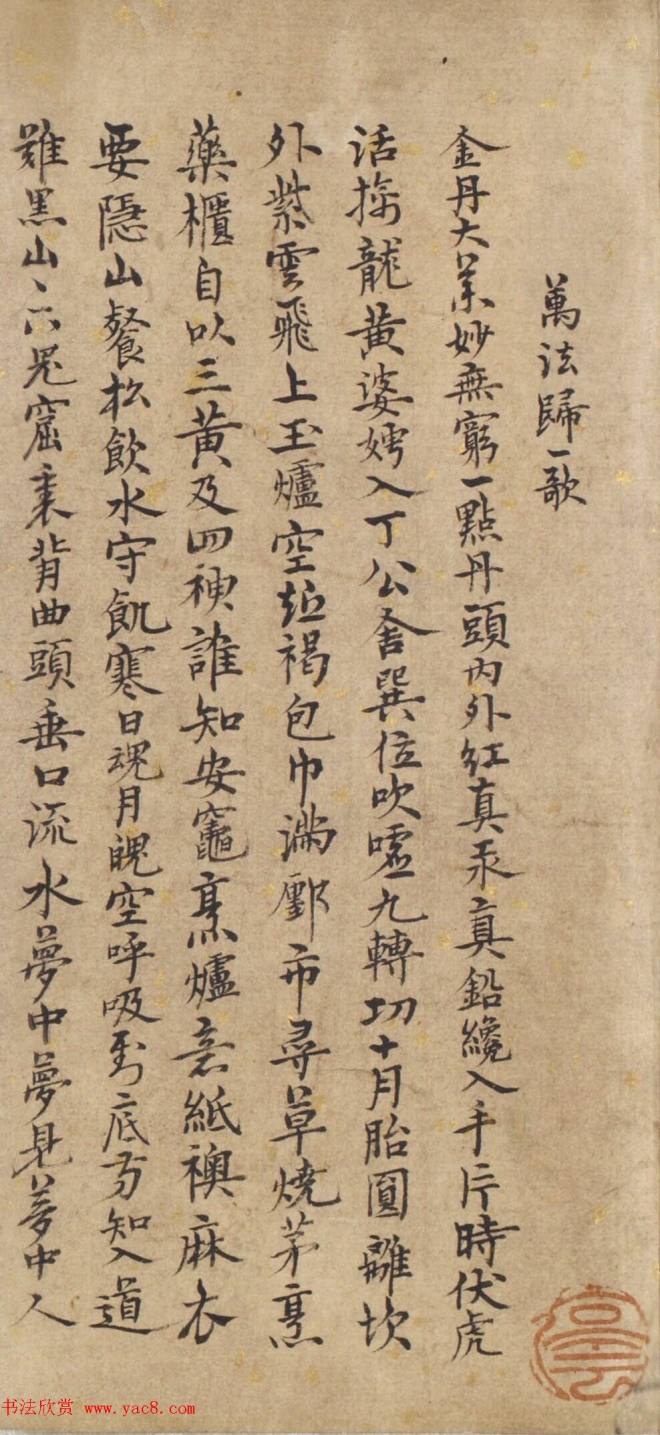 萬法歸一歌
金丹大業妙無窮一點丹頭內外紅真汞真鉛纔入手片時伏虎
活擒龍黃婆娉入丁公舍巽位吹噓九轉功十月胎圓離坎
外紫雲飛上玉爐空短褐包巾滿鄽市尋草燒茅烹
藥櫃自以三黃及四神誰知安竈烹爐意紙襖麻衣
要隱山餐松飲水守飢寒日魂月魄空呼吸到底方知入道
難黑山山下鬼窟裏背曲頭垂口流水夢中夢見夢中人
书法欣赏 www.yac8.com